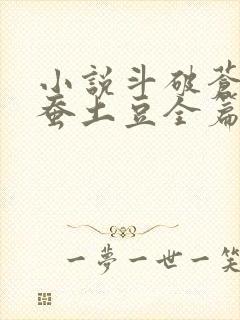 小説斗破蒼
蚕土豆全篇
一夢一世一笑